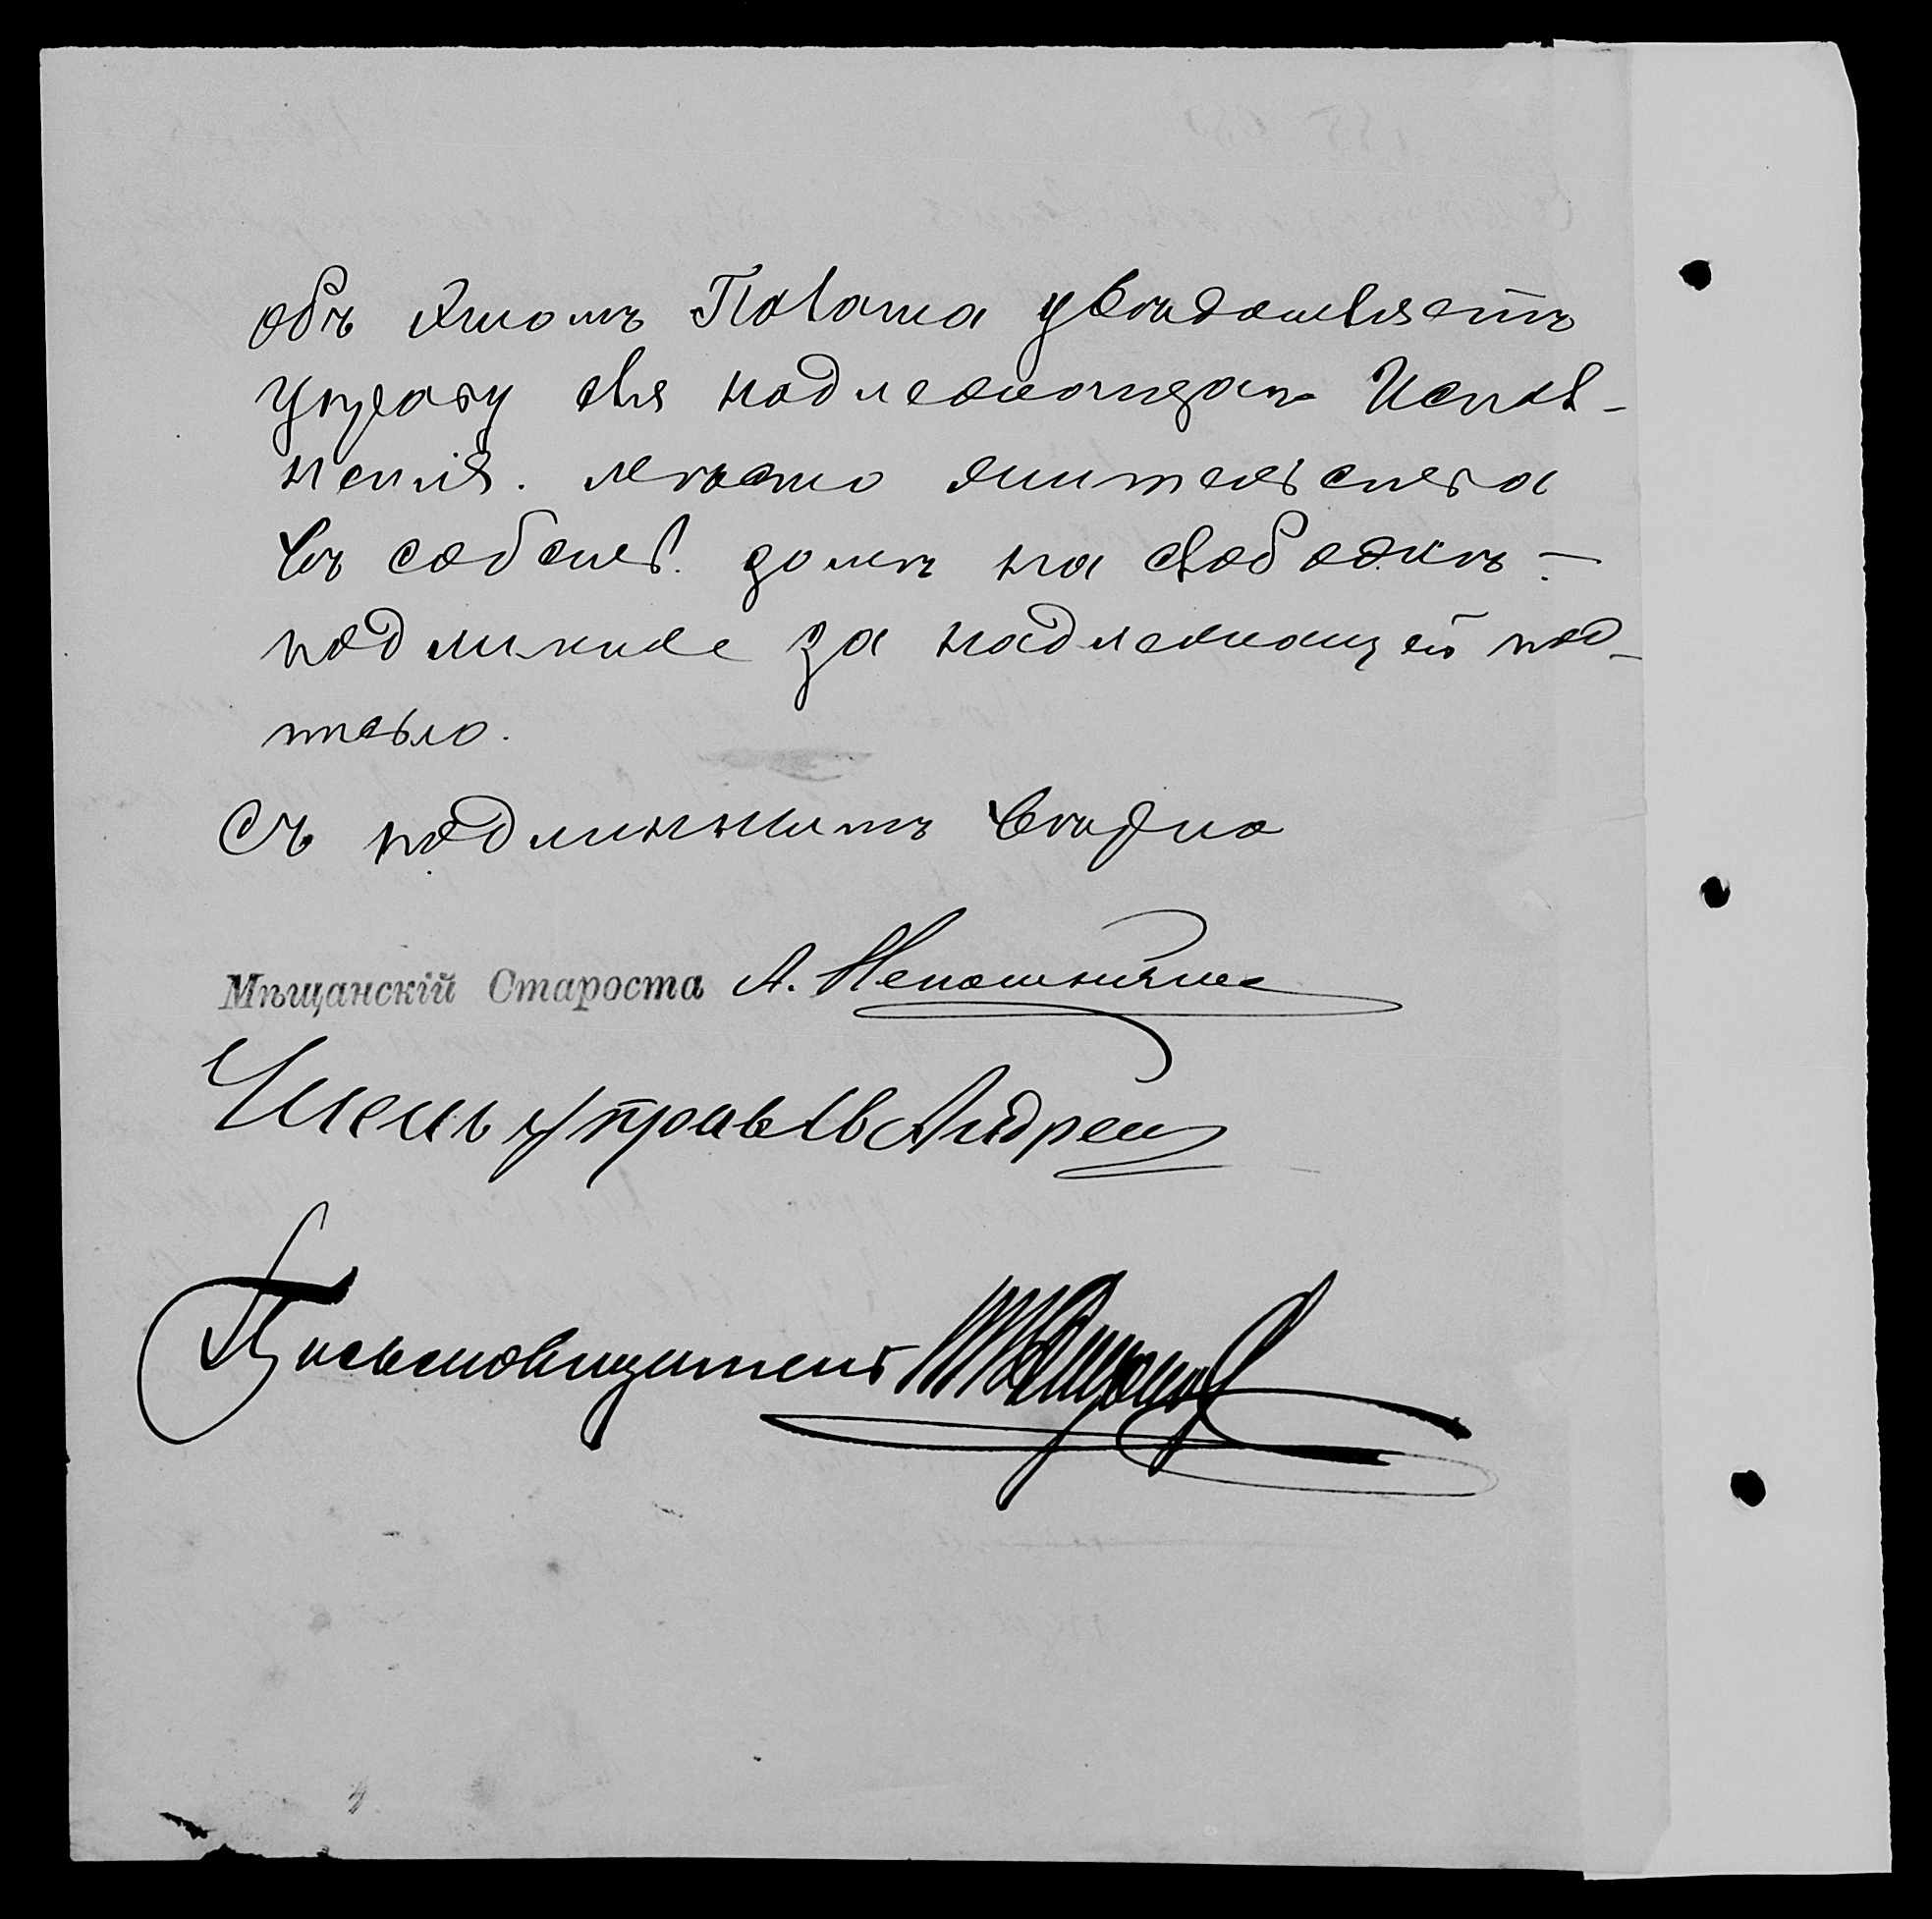 объ этомъ Палата увѣдомляетъ
управу для надлежащаго Испол-
ненія. мѣсто жительства
въ собств. домѣ на слободкѣ -
подлинное за надлежащей под-
писью.
Съ подлиннымъ вѣрно
Мѣщанскій Староста А.
Членъ управы Ив Андреев
Письмоводитель